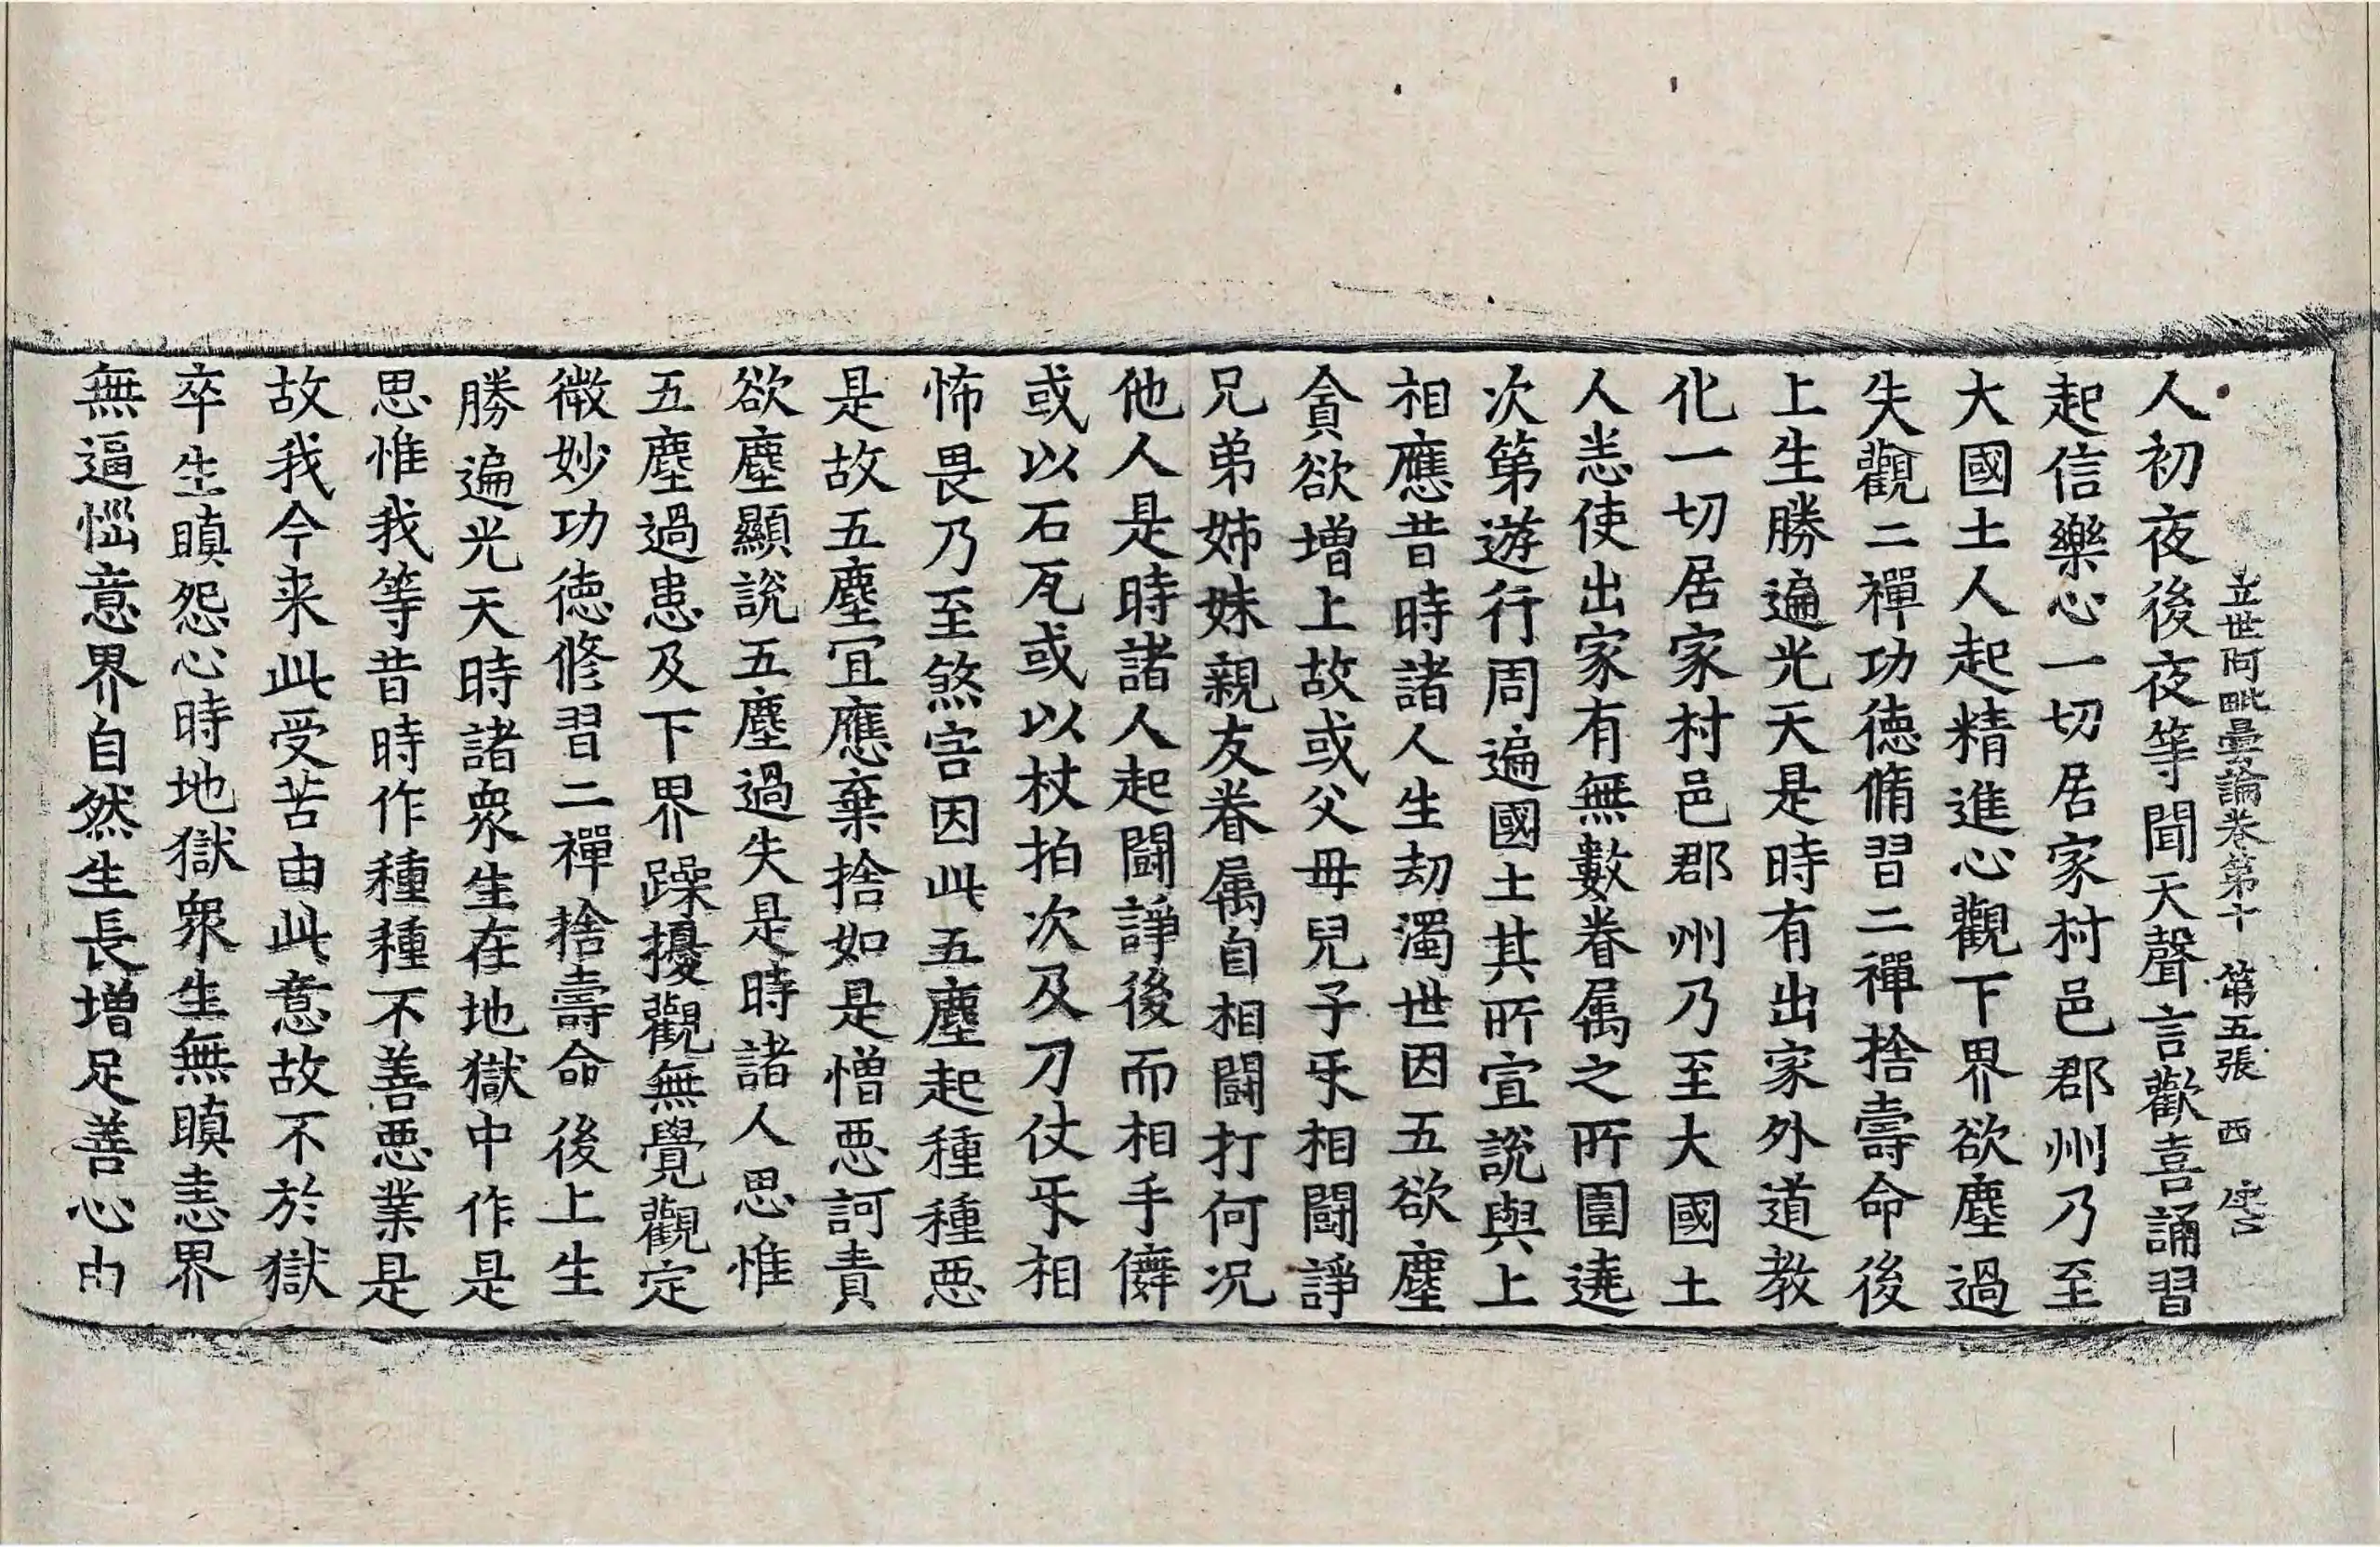 立世阿毗曇論卷第十 第五張 西
人初夜後夜等聞天聲言歡喜誦習
起信樂心一切居家村邑郡州乃至
大國土人起精進心觀下界欲塵過
失觀二禪功德脩習二禪捨壽命後
上生勝遍光天是時有出家外道教
化一切居家村邑郡州乃至大國土
人恙使出家有無數眷属之所圍遶
次第遊行周遍國土其所宣說與上
相應昔時諸人生劫濁世因五欲塵
貪欲增上故或父母兒子㸦相鬪諍
兄弟姊妹親友眷属自相鬪打何况
他人是時諸人起鬪諍後而相手僻
或以石瓦或以杖拍次及刀仗㸦相
怖畏乃至煞害因此五塵起種種惡
是故五塵宜應棄捨如是憎惡訶責
欲塵顯說五塵過失是時諸人思惟
五塵過患及下界躁擾觀無覺觀定
微妙功德修習二禪捨壽命後上生
勝遍光天時諸衆生在地獄中作是
思惟我等昔時作種種不善惡業是
故我今来此受苦由此意故不於獄
卒生瞋怨心時地獄衆生無瞋恚界
無逼惱意界自然生長增足善心由